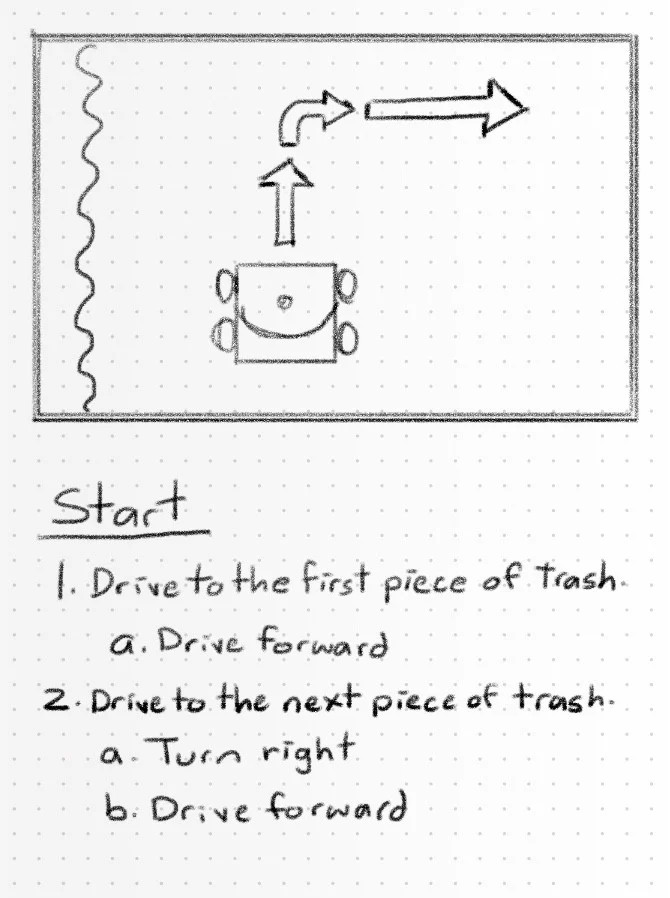 Start
1. Drive to the first piece of trash.
a. Drive forward
2. Drive to the next piece of trash.
a. Turn right
b. Drive forward